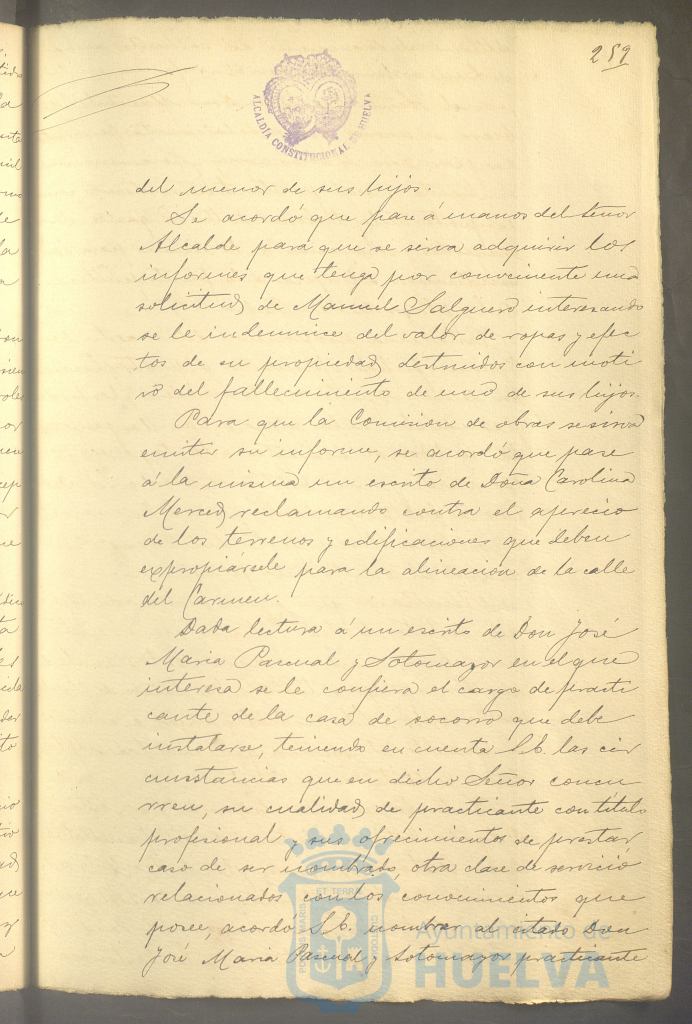 259
ALCALDÍA CONSTITUCIONAL DE HUELVA
del menor de sus hijos.
Se acordó que pase á manos del Señor
Alcalde para que se sirva adquirir los
informes que tenga por conveniente una
solicitud de Manuel Salguero interesando
se le indemnice del valor de ropas y efec
tos de su propiedad destruidos con moti
vo del fallecimiento de uno de sus hijos.
Para que la Comision de obras se sirva
emitir su informe, se acordó que pase
á la misma un escrito de Doña Carolina
Merced reclamando contra el aprecio
de los terrenos y edificaciones que deben
expropiársele para la alineación de la calle
del Carmen.
Dada lectura á un escrito de Don José
Maria Pascual y Sotomayor en el que
interesa se le confiera el cargo de practi
cante de la casa de socorro que debe
instalarse, teniendo en cuenta S.E. las cir
cunstancias que en dicho Señor concu
rren, su cualidad de practicante con título
profesional y sus ofrecimientos de prestar
caso de ser nombrado, otra clase de servicio
relacionados con los conocimientos que
posee, acordó S.E. nombrar al citado Don
José Maria Pascual y Sotomayor practicante
PORTUS MARIS ET TERRAE CUSTODIA
Ayuntamiento de
HUELVA